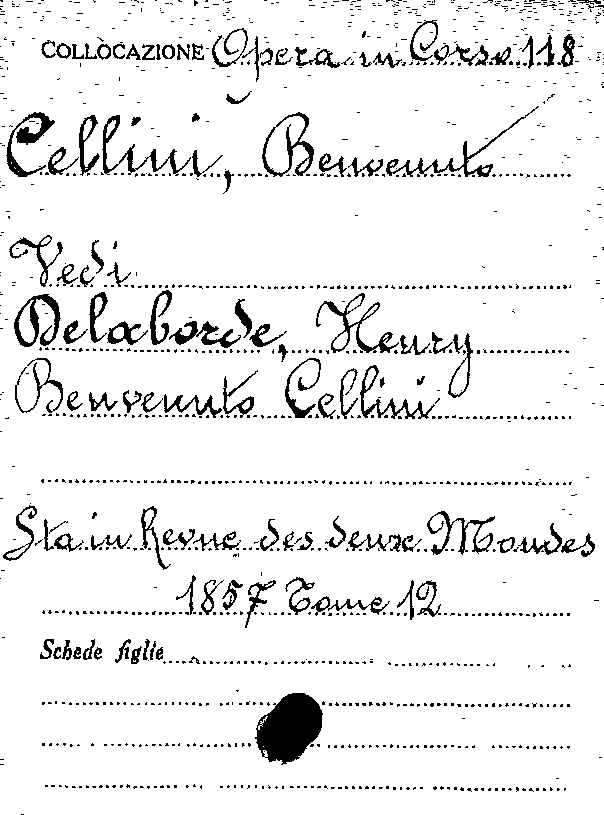 COLLOCAZIONE Opera in Corso 118
Cellini, Benvenuto
Vedi
Delaborde, Henry
Benvenuto Cellini
Sta in Revue des deux Mondes
1857 Tome 12
Schede figlie